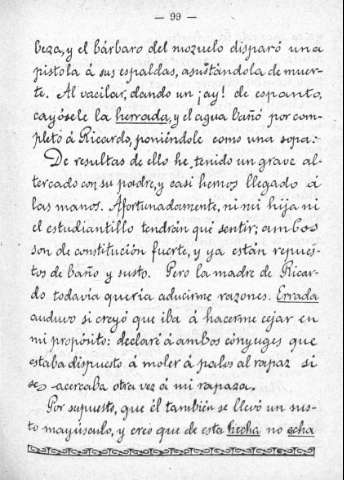 — 99 —
beza, y el bárbaro del mozuelo disparó una
pistola á sus espaldas, asustándola de muer-
te. Al vacilar, dando un ¡ay! de espanto,
cayósele la herrada, y el agua bañó por com-
pletó á Ricardo, poniéndole como una sopa.
De resultas de ello he tenido un grave al-
tercado con su padre, y casi hemos llegado á
las manos. Afortunadamente, ni mi hija ni
el estudiantillo tendrán que sentir; ambos
son de constitución fuerte, y ya están repues-
tos de baño y susto. Pero la madre de Ricar-
do todavía quería aducirme razones. Errada
anduvo si creyó que iba á hacerme cejar en
mi propósito: declaré á ambos cónyuges que
estaba dispuesto á moler á palos al rapaz si
se acercaba otra vez á mi rapaza.
Por supuesto, que él también se llevó un sus-
to mayúsculo, y creo que de esta hecha no echa